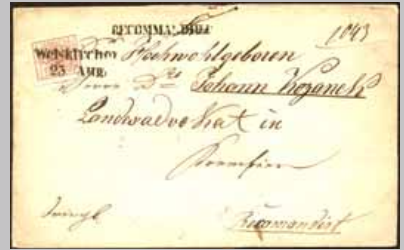 RECOMMANDIRT
1043
Weiskirchen
25 APR.
Hochwohlgeboren
Herrn Drs Johann Kozanek
Landesadvokat in
Kremsier
Recomandirt